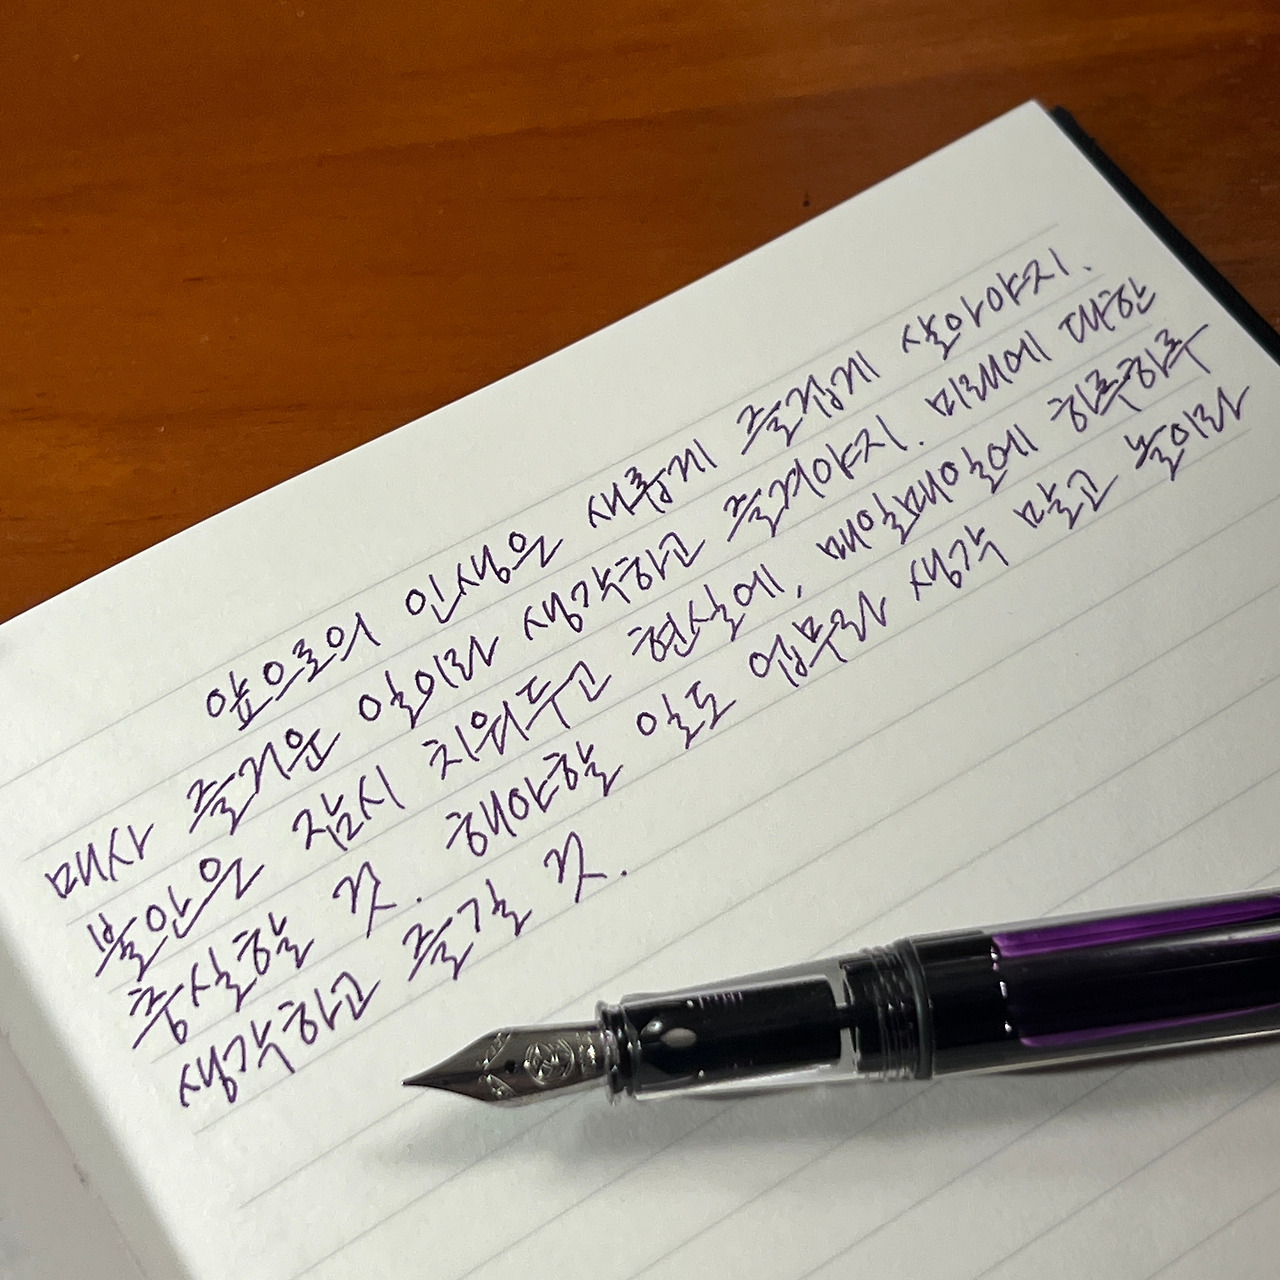 앞으로의 인생은 새롭게 즐겁게 살아야지.
매사 즐거운 일이라 생각하고 즐겨야지. 미래에 대한
불안은 잠시 치워두고 현실에, 매일매일에 하루하루
충실할 것. 해야할 일도 업무라 생각 말고 놀이라
생각하고 즐길 것.